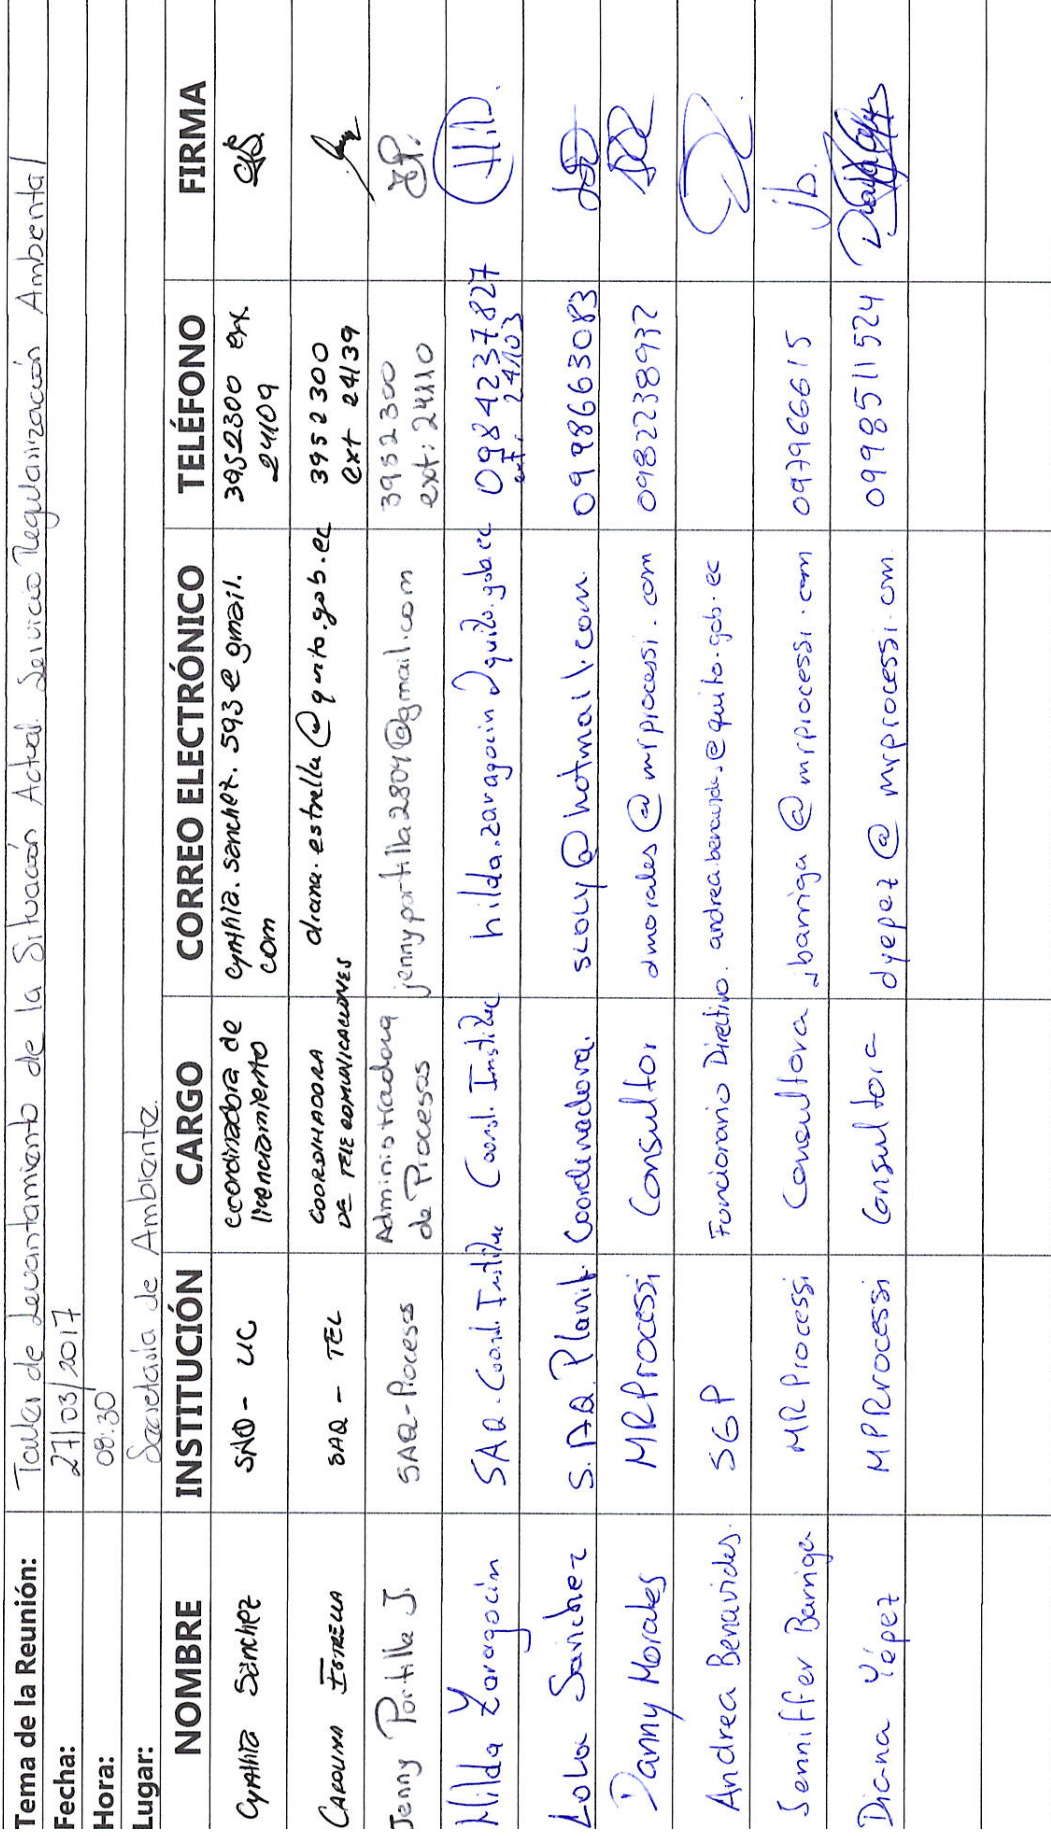 Tema de la Reunión: Taller de Levantamiento de la Situación Actual Servicio Regularización Ambiental
Fecha: 27/03/2017
Hora: 08:30
Lugar: Secretaría de Ambiente.
NOMBRE INSTITUCIÓN CARGO CORREO ELECTRÓNICO TELÉFONO FIRMA
Cynthia Sánchez SAQ - LIC coordinadora de licenciamiento cynthia.sanchez.593@gmail.com 3952300 ext 24109
CAROLINA ESTRELLA SAQ - TEL COORDINADORA DE TELECOMUNICACIONES diana.estrella@quito.gob.ec 3952300 ext 24139
Jenny Portilla J. SAQ-Procesos Administradora de Procesos jennyportilla2804@gmail.com 3952300 ext: 24110 JP.
Hilda Zaragocín SAQ-Coord. Coord. hilda.zaragocin@quito.gob.ec 0984237827 ext. 24103
Lola Sánchez S.AQ. Planif. Coordinadora. sloly@hotmail.com. 0998663083
Danny Morales MRProcessi Consultor dmorales@mrprocessi.com 0982238932
Andrea Benavides. SGP Funcionario Directivo. andrea.benavides@quito.gob.ec
Jenniffer Barriga MR Processi Consultora jbarriga@mrprocessi.com 0979666615 jb.
Diana Yépez MPRrocessi Consultora dyepez@mrprocessi.com 0998511524